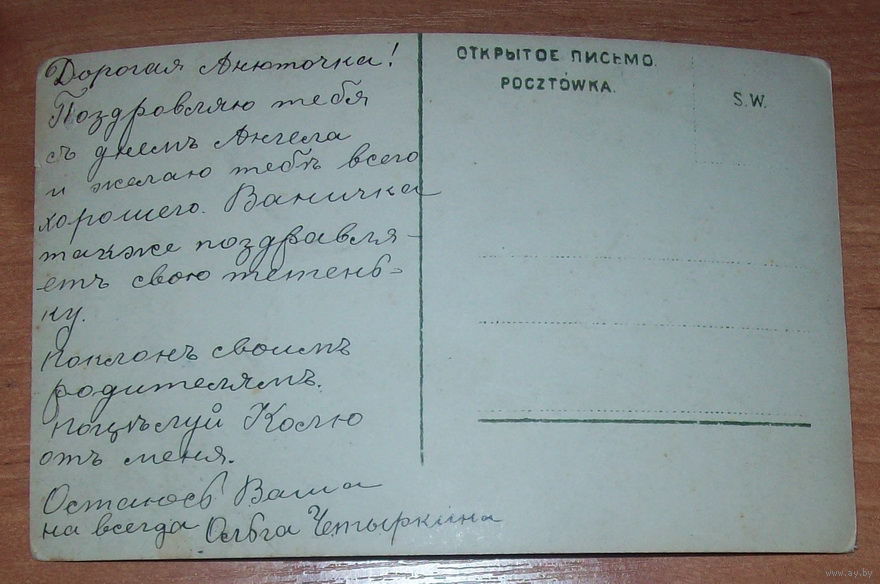 Дорогая Анюточка!
Поздровляю тебя
съ днемъ Ангела
и желаю тебѣ всего
хорошего. Ваничка
также поздравля-
етъ свою тетень-
ку.
Поклонъ своимъ
родителямъ.
Поцѣлуй Колю
отъ меня.
Остаюсь Ваша
на всегда Ольга Четыркина
ОТКРЫТОЕ ПИСЬМО.
POCZTÓWKA.
S.W.
www.ay.by